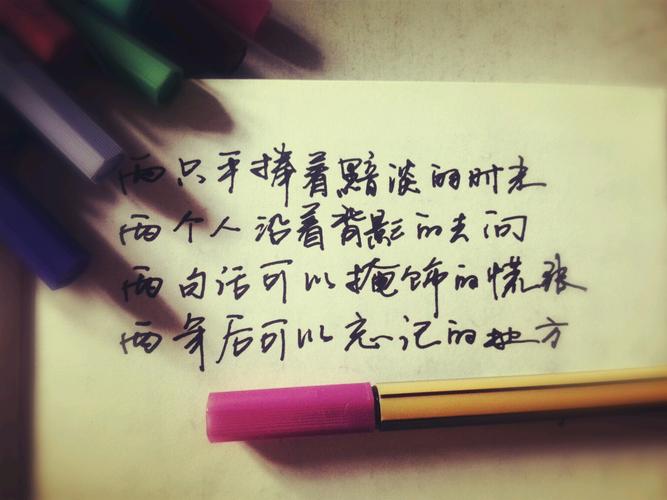 两只手捧着黯淡的时光
两个人沿着背影的去向
两句话可以掩饰的慌张
两年后可以忘记的地方